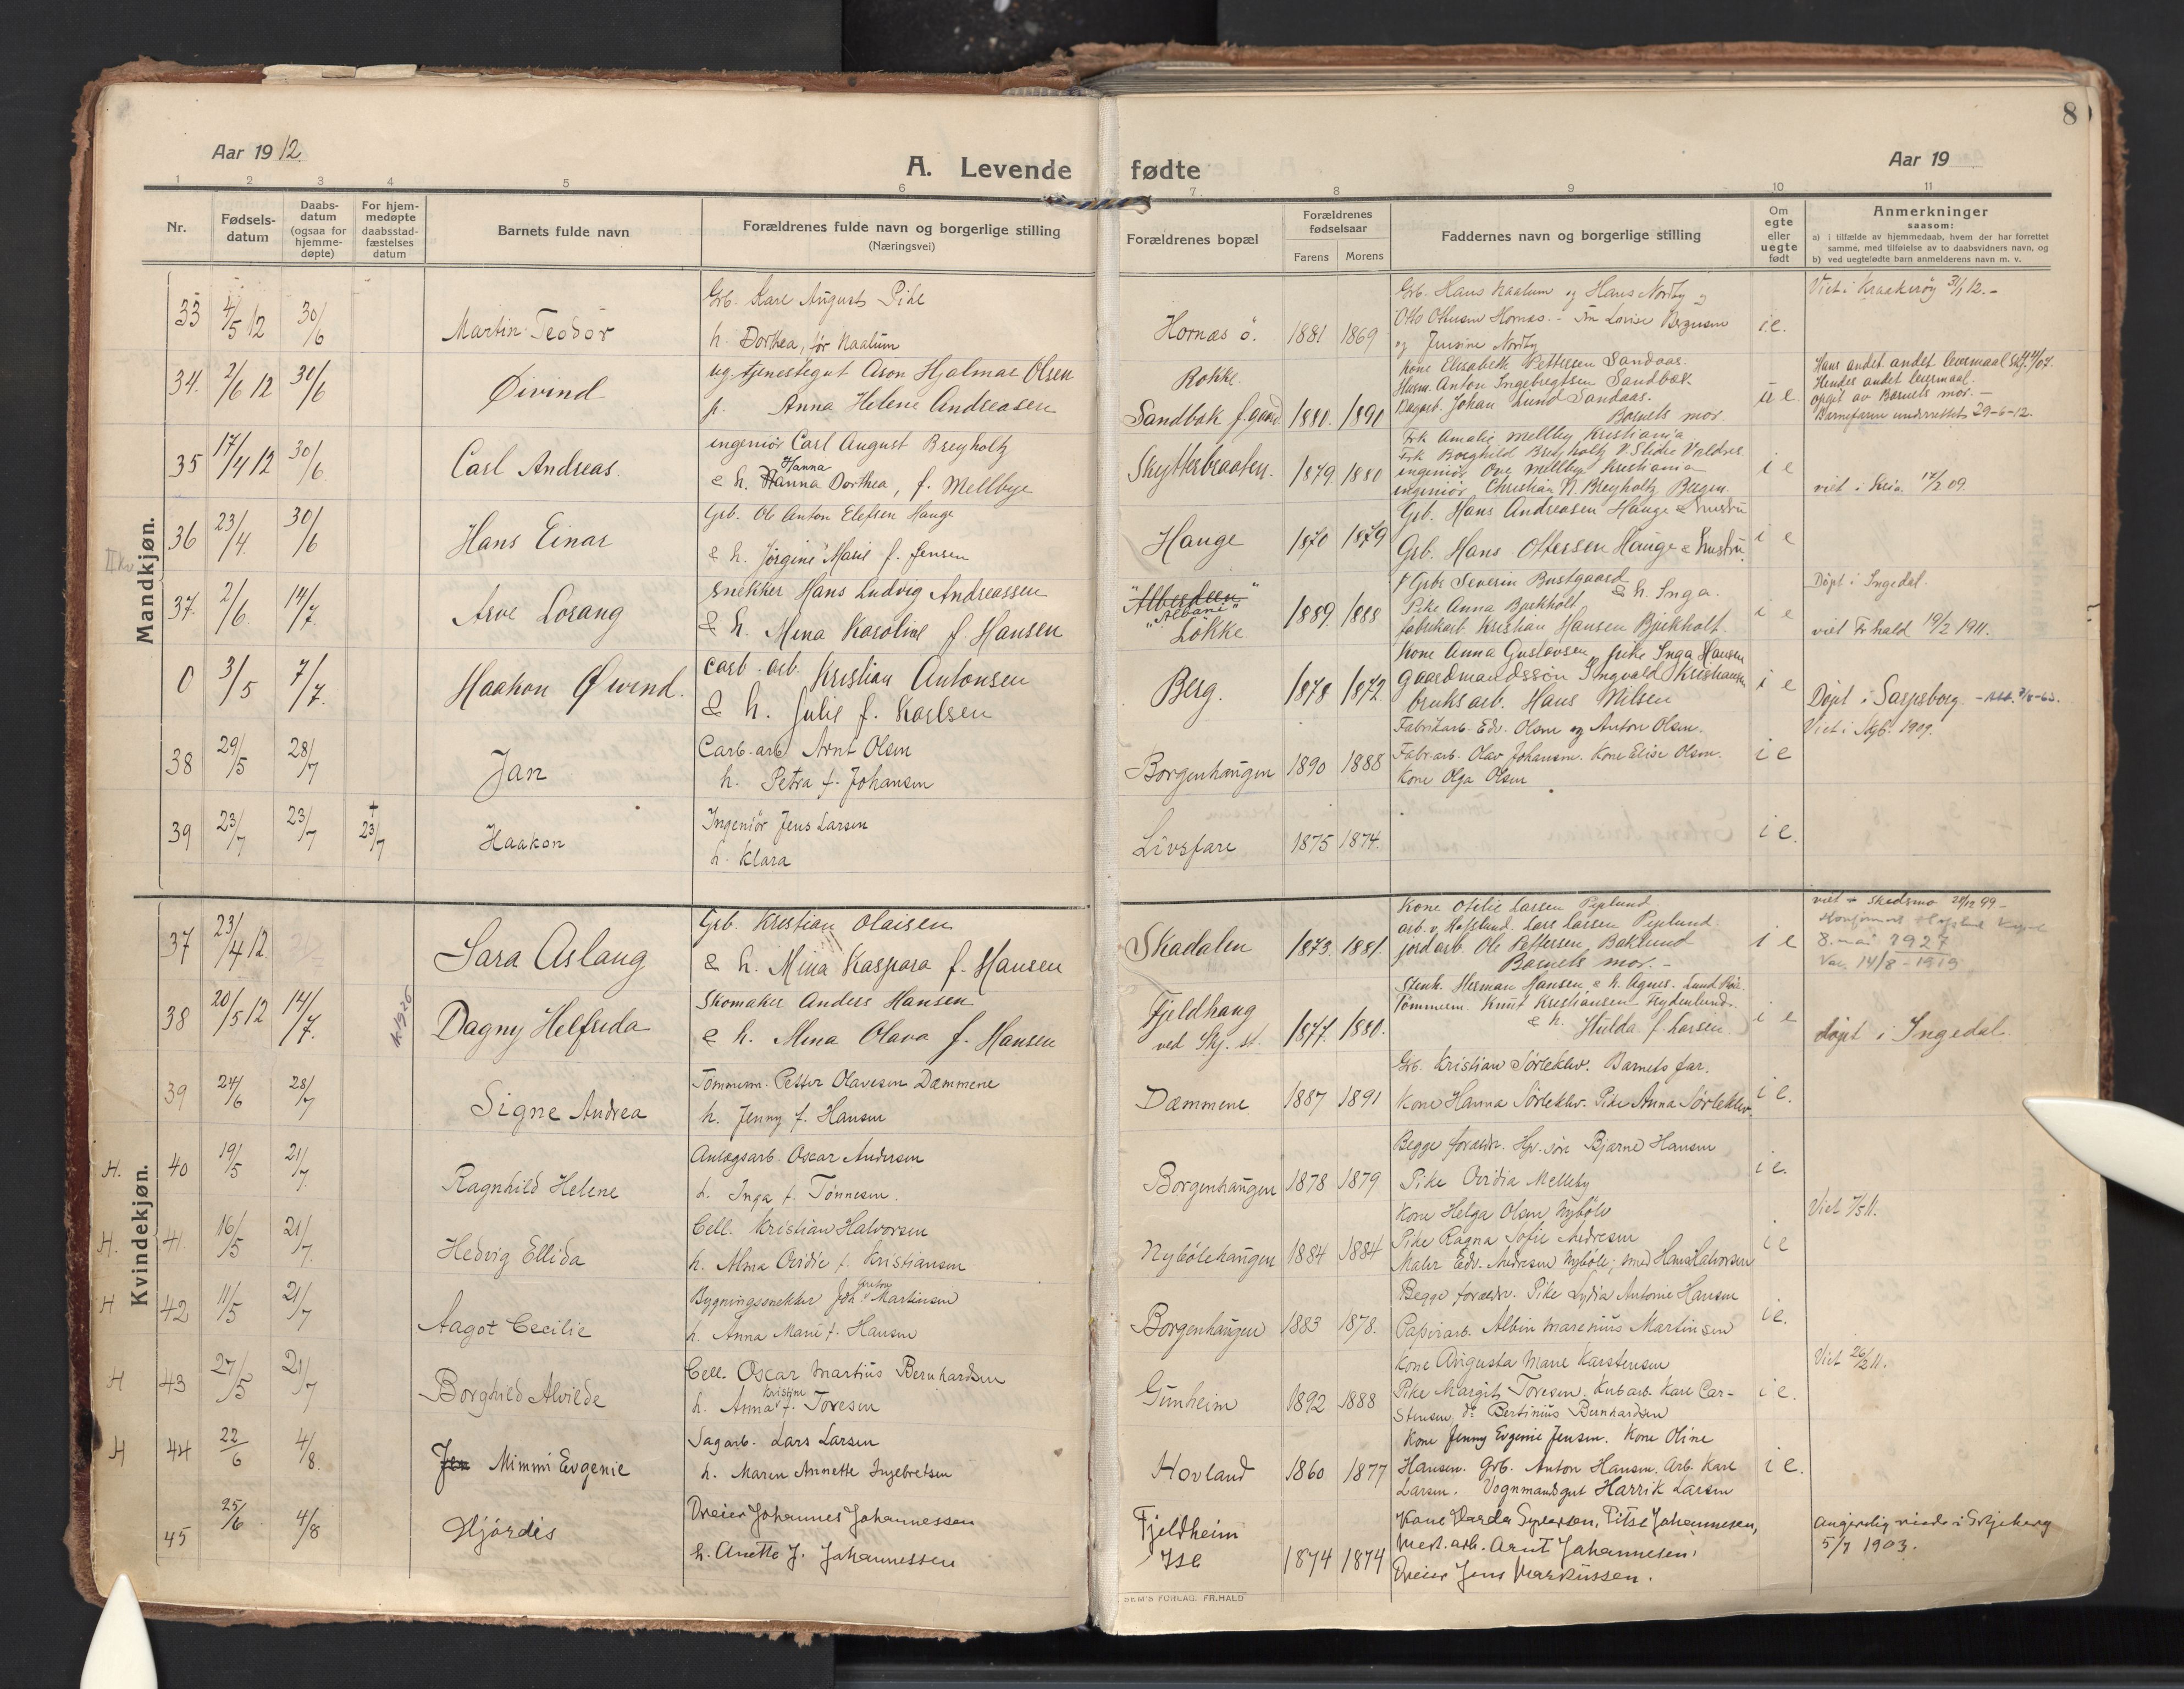 8
Aar 1912.
A. Levende fødte
Aar 19
1 2 3 4 5 6 7 8 9 10 11
Nr.
Fødsels-
datum
Daabs-
datum
(ogsaa for
hjemme-
døpte)
For hjem-
medøpte
daabsstad-
fæstelses
datum
Barnets fulde navn
Forældrenes fulde navn og borgerlige stilling
(Næringsvei)
Forældrenes bopæl
Forældrenes
fødselsaar
Farens Morens
Faddernes navn og borgerlige stilling
Om
egte
eller
uegte
født
Anmerkninger
saasom:
a) i tilfælde av hjemmedaab, hvem der har forrettet
samme, med tilføielse av to daabsvidners navn, og
b) ved uegtefødte barn anmelderens navn m. v.
Mandkjøn.
33 4/5 12 30/6 Martin Teodor
Grb. Karl August Pihl
h. Dorthea, før Naalum
Hornæs ö. 1881 1869
Grb. Hans Naalum og Hans Nordby og
Otto Ottesen Hornæs. - Fru Lovise Børgesen
og Jensine Nordby
i e.
Viet i Kraakerøy 3/1 12. -
34. 2/6 12 30/6 Øivind
ug. tjenestegut Ason Hjalmar Olsen
p. Anna Helene Andreasen
Rokke.
Sandbæk f. gaard 1880. 1890
Kone Elisabeth Pettersen Sandaas.
Husm. Anton Ingebregtsen Sandbæk.
Dagarb. Johan Lund Sandaas.
Barnets mor.
u e.
Hans andet andet leiermaal
Hendes andet leiermaal.
opgit av Barnets mor. -
Barnefaren underrettet 29-6-12.
35 17/4 12 30/6 Carl Andreas.
ingeniør Carl August Breyholtz
Hanna
& h. Dorthea, f. Mellbye
Skytterbraaten. 1879. 1880
Frk Amalie Mellby Kristiania
Frk Borghild Breyholtz V. Slidre Valdres
ingeniør Ove Mellbye Kristiania
ingeniør Christian N. Breyholtz Bergen
i e
viet i Kria. 17/2 09.
36 23/4. 30/6 Hans Einar
Grb. Ole Anton Elefsen Hauge
& h. Jørgine Marie f. Jensen
Hauge 1870 1879
Grb. Hans Andreasen Hauge & hustru
Grb. Hans Ottersen Hauge & hustru.
i e
37. 2/6. 14/7. Arve Losang
Snekker Hans Ludvig Andreassen
& h. Mina Karoline f. Hansen
"Alberdeen"
"Albani"
Løkke 1889. 1888
Grbr Severin Bustgaard & h. Inga.
Pike Anna Bjerkholt
fabrikarb. Kristian Hansen Bjerkholt.
i e
Døpt i Ingedal.
viet Fr.hald 19/2 1911.
0 3/5 7/7. Haakon Øivind.
Carb. arb. Kristian Antonsen
& h. Julie f. Karlsen
Berg. 1878 1872
Kone Anna Gustavsen, frk. Inga Hansen
gaardmandssøn Ingvald Kristiansen
bruksarb. Hans Nilsen
i e
Døpt i Sarpsborg
38 29/5 28/7 Jan
Carb. arb. Arnt Olsen
h. Petra f. Johansen
Borgenhaugen 1890 1888
Fabrikarb. Edv. Olsen og Anton Olsen.
Fabr. arb. Olav Johansen. Kone Elise Olsen.
Kone Olga Olsen
i e
Viet i Skjb. 1909.
39 23/7 23/7 + 23/7 Haakon
Ingeniør Jens Larsen
h. Klara
Livsfare 1875 1874.
i e.
Kvindekjøn.
37 23/4 12. Sara Aslaug
Grb. Kristian Olaisen
& h. Mina Kaspara f. Hansen
Skadalen 1873. 1881.
Kone Otelie Larsen Peplund
arb. v. Hafslund. Lars Larsen Peplund
jordarb. Ole Pettersen Baklund
Barnets mor. -
i e
viet i Skedsmo 28/12 99 -
8. mai 1927
Vac. 14/8 - 1919
38 20/5 12 14/7. K. 1926 Dagny Helfrida
Skomaker Anders Hansen
& h. Mina Olava f. Hansen
Fjeldhaug
ved Skj. st. 1877. 1880.
Stenh. Herman Hansen & h. Agnes. Lund
Tømmerm. Knut Kristiansen Hydenlund.
& h. Hulda f. Larsen
i e
døpt i Ingedal
39 24/6 28/7 Signe Andrea
Tømmerm. Petter Olavesen Dæmmene
h. Jenny f. Hansen
Dæmmene 1887 1891
Grb. Kristian Sørleklev. Barnets far.
Kone Hanna Sørleklev. Pike Anna Sørleklev.
i e.
H. 40 19/5 21/7. Ragnhild Helene
Anlægsarb. Oscar Andersen
h. Inga f. Tønnesen.
Borgenhaugen 1878 1879
Begge forældr. Hr. Bjarne Hansen
Pike Ovidia Melleby
i e.
H. 41. 16/5 21/7. Hedvig Ellida
Cell. Kristian Halvorsen
h. Alma Ovidie f. Kristiansen
Nybölehaugen 1884 1884
Kone Helga Olsen Nyböle
Pike Ragna Sofie Andresen
Maler Edv. Andresen Nyböle; smed Hans Halvorsen
i e
Viet 7/5 11.
H 42 11/5 21/7 Aagot Cecilie
Bygningssnekker Joh. Anton Martinsen
h. Anna Marie f. Hansen
Borgenhaugen 1883 1878.
Begge forældr. Pike Lydia Antonie Hansen
Papirarb. Albin Marenius Martinsen
i e.
H 43 27/5 21/7 Borghild Alvilde
Cell. Oscar Martius Bernhardsen
h. Anna Kristine f. Toresen
Gunheim 1892 1888
Kone Augusta Marie Karstensen
Pike Margit Toresen. Karl Car-
stensen, do Bertinius Bernhardsen
i e.
Viet 26/2 11.
H 44 22/6 4/8. Jen Mimmi Evgenie
Sagarb. Lars Larsen
h. Maren Annette Ingebretsen
Hovland 1860 1877
Kone Jenny Evgenie Jensen. Kone Oline
Hansen. Grb. Anton Hansen. Arb. Karl
Larsen. Vognmandsgut Harrik Larsen
i e.
45 25/6 4/8 Hjördis
Dreier Johannes Johannessen
h. Anette J. Johannessen
Fjeldheim
Ise 1874 1874
Kone Syversen, Johannesen,
mek. arb. Arnt Johannesen,
Dreier Jens Markussen.
angivelig viede i Skjeberg
5/7 1903.
SEM'S FORLAG. FR.HALD